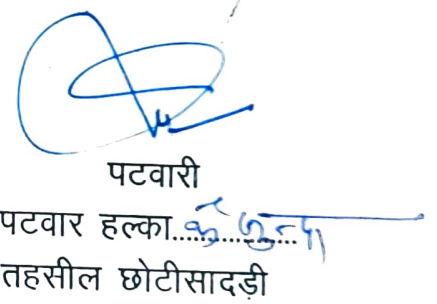 पटवारी
पटवार हल्का..............
तहसील छोटीसादड़ी